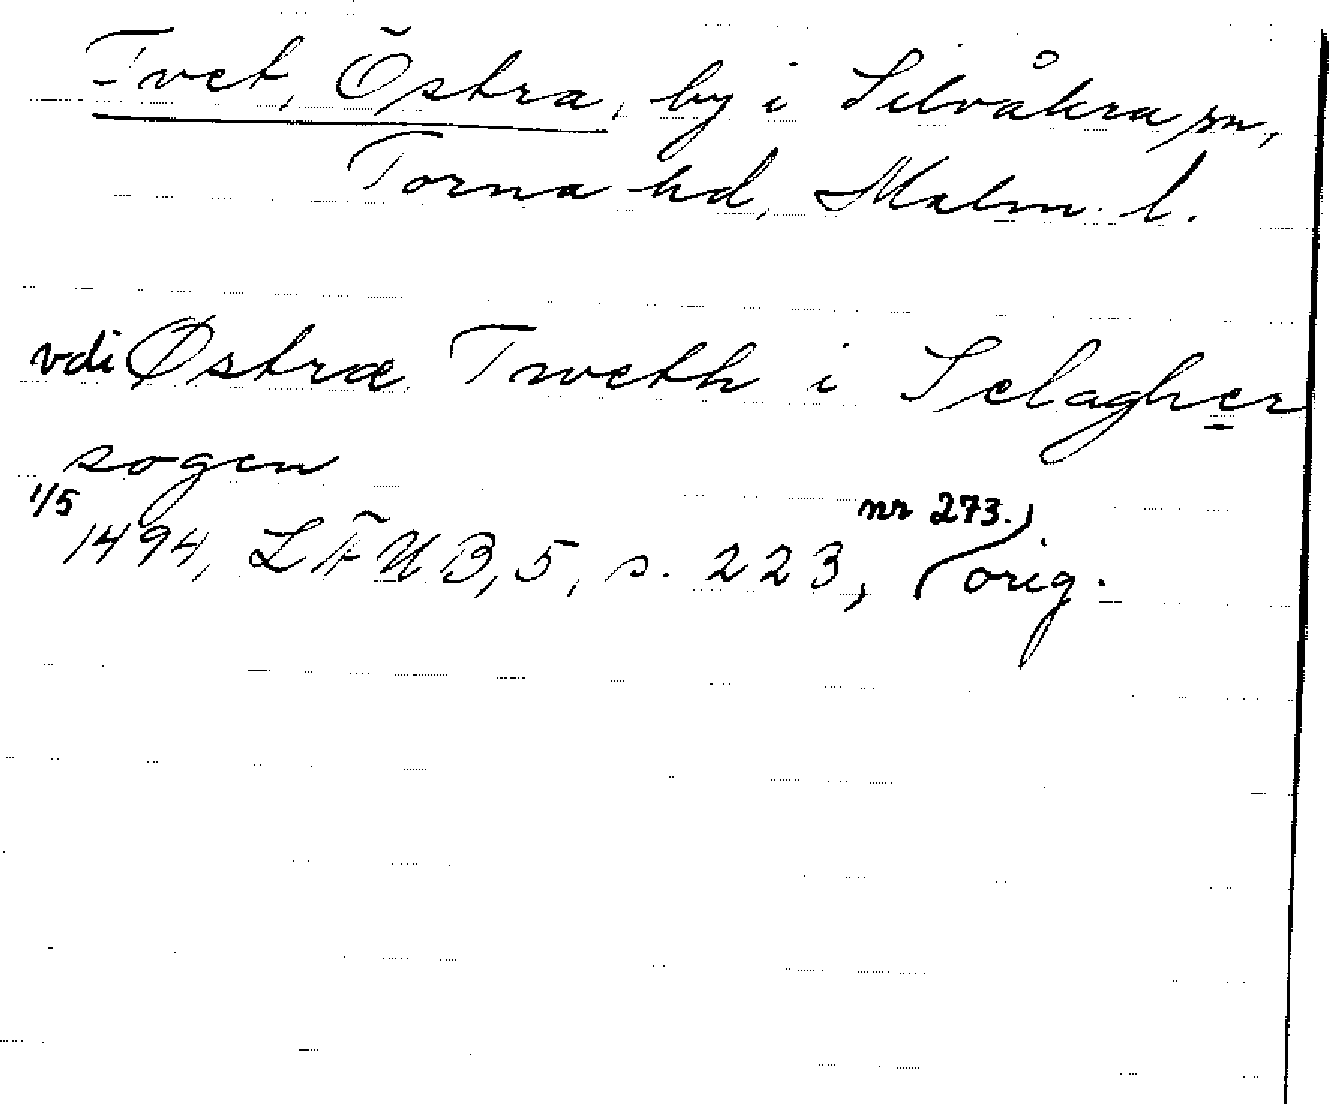 Tvet, Östra, by i Silvåkra sn,
Torna hd, Malm. l.
vdi Østræ Tweth i Selagher
sogen
1/5 1494, LÄUB, 5, s. 223, nr 273.) orig.